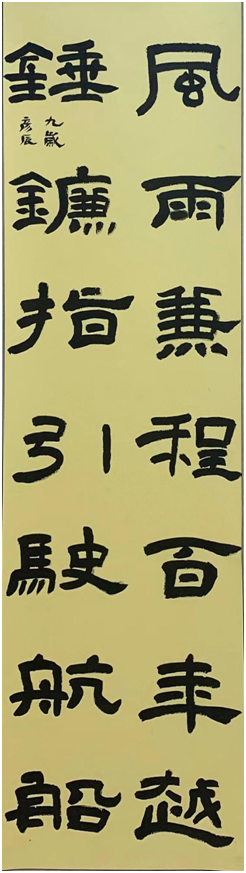 風雨兼程百年越
錘鐮指引駛航船
九歲
彥辰